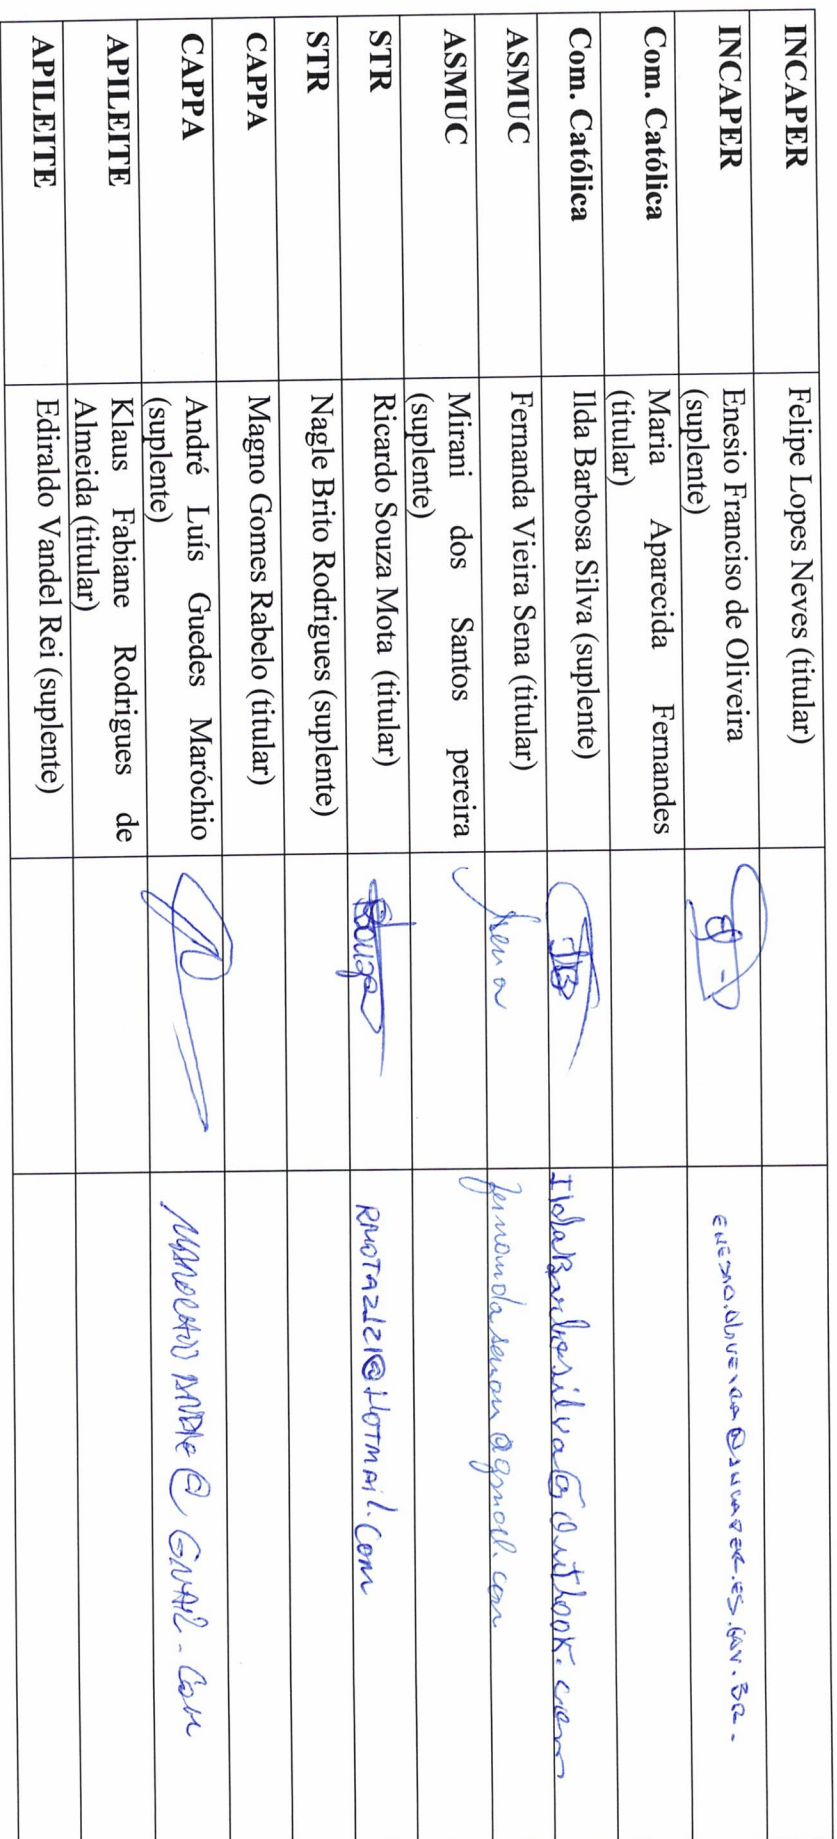 INCAPER Felipe Lopes Neves (titular)
INCAPER Enesio Franciso de Oliveira
(suplente) ENESIO.OLIVEIRA@INCAPER.ES.GOV.BR.
Com. Católica Maria Aparecida Fernandes
(titular)
Com. Católica Ilda Barbosa Silva (suplente) IldaBarbosilva@Outlook.com
ASMUC Fernanda Vieira Sena (titular) Sena
ASMUC Mirani dos Santos pereira
(suplente)
STR Ricardo Souza Mota (titular) RSouza RMOTA2121@HOTMAIL.COM
STR Nagle Brito Rodrigues (suplente)
CAPPA Magno Gomes Rabelo (titular)
CAPPA André Luís Guedes Maróchio
(suplente)
APILEITE Klaus Fabiane Rodrigues de
Almeida (titular)
APILEITE Ediraldo Vandel Rei (suplente)